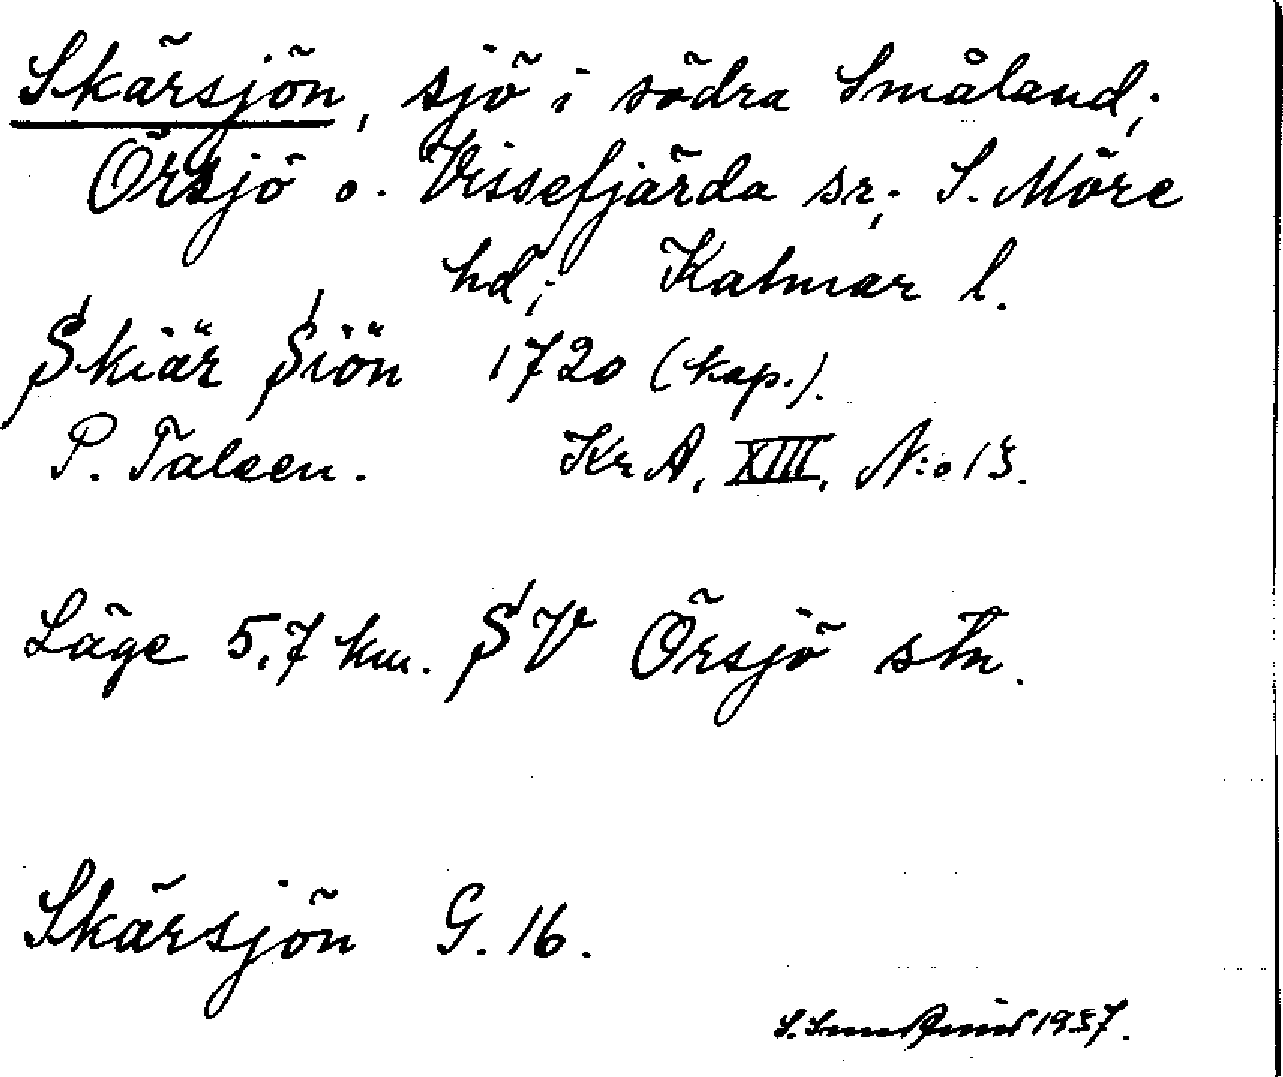 Skärsjön, sjö i södra Småland;
Örsjö o. Vissefjärda sr; S. Möre
hd; Kalmar l.
Skiär Siön 1720 (kop.).
P. Taleen. KrA, XIII, N:o 13.
Läge 5,7 km. SV Örsjö stn.
Skärsjön G. 16.
1937.